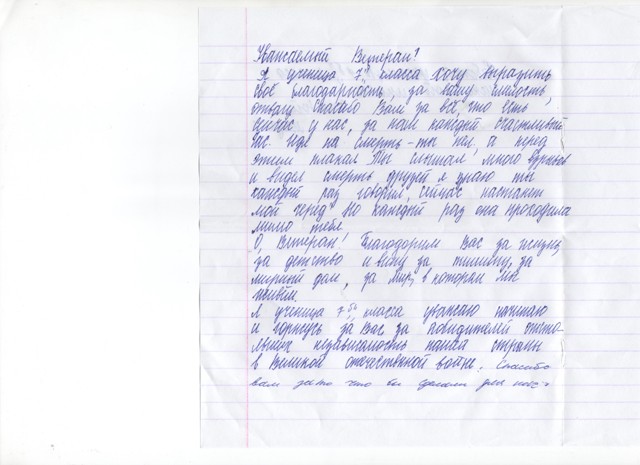 Уважаемый Ветеран!
Я ученица 7 класса хочу выразить
своё благодарность, за вашу смелость,
отвагу Спасибо Вам за всё, что есть
сейчас у нас, за наш каждый счастливый
час. Идя на смерть - ты пел, а перед
этим плакал Ты слышал много взрывов
и видел смерть друзей я знаю ты
каждый раз говорил, сейчас настанет
мой черёд Но каждый раз она проходила
мимо тебя.
О, Ветеран! Благодарим Вас за жизнь,
за детство и весну за тишину, за
мирный дом, за мир, в котором мы
живём.
Я ученица 7 класса уважаю почитаю
и горжусь за Вас за победителей отсто-
явших независимость нашей страны
в Великой отечественной войне. Спасибо
вам за то что вы сделали для нас